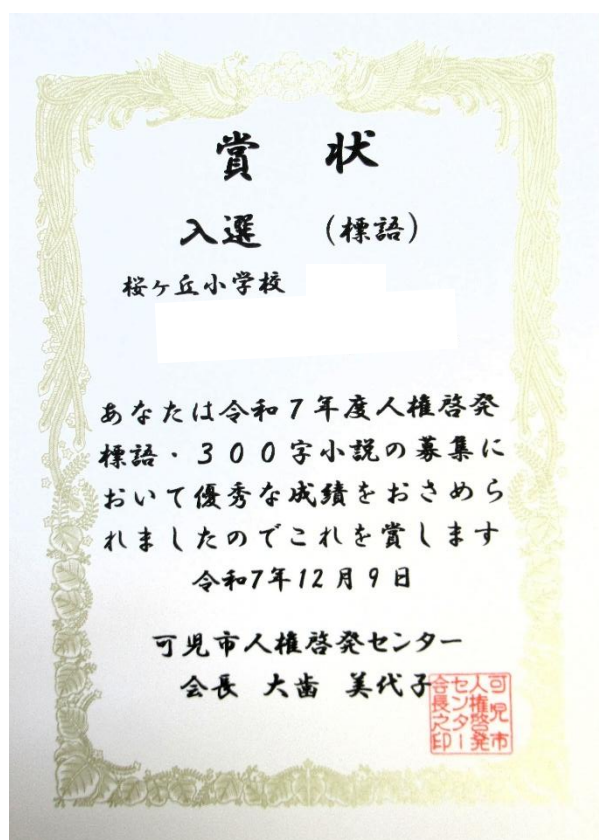 賞状
入選 （標語）
桜ヶ丘小学校
あなたは令和７年度人権啓発
標語・３００字小説の募集に
おいて優秀な成績をおさめら
れましたのでこれを賞します
令和7年12月9日
可児市人権啓発センター
会長 大歯 美代子
可児市
人権啓発
センター
会長之印